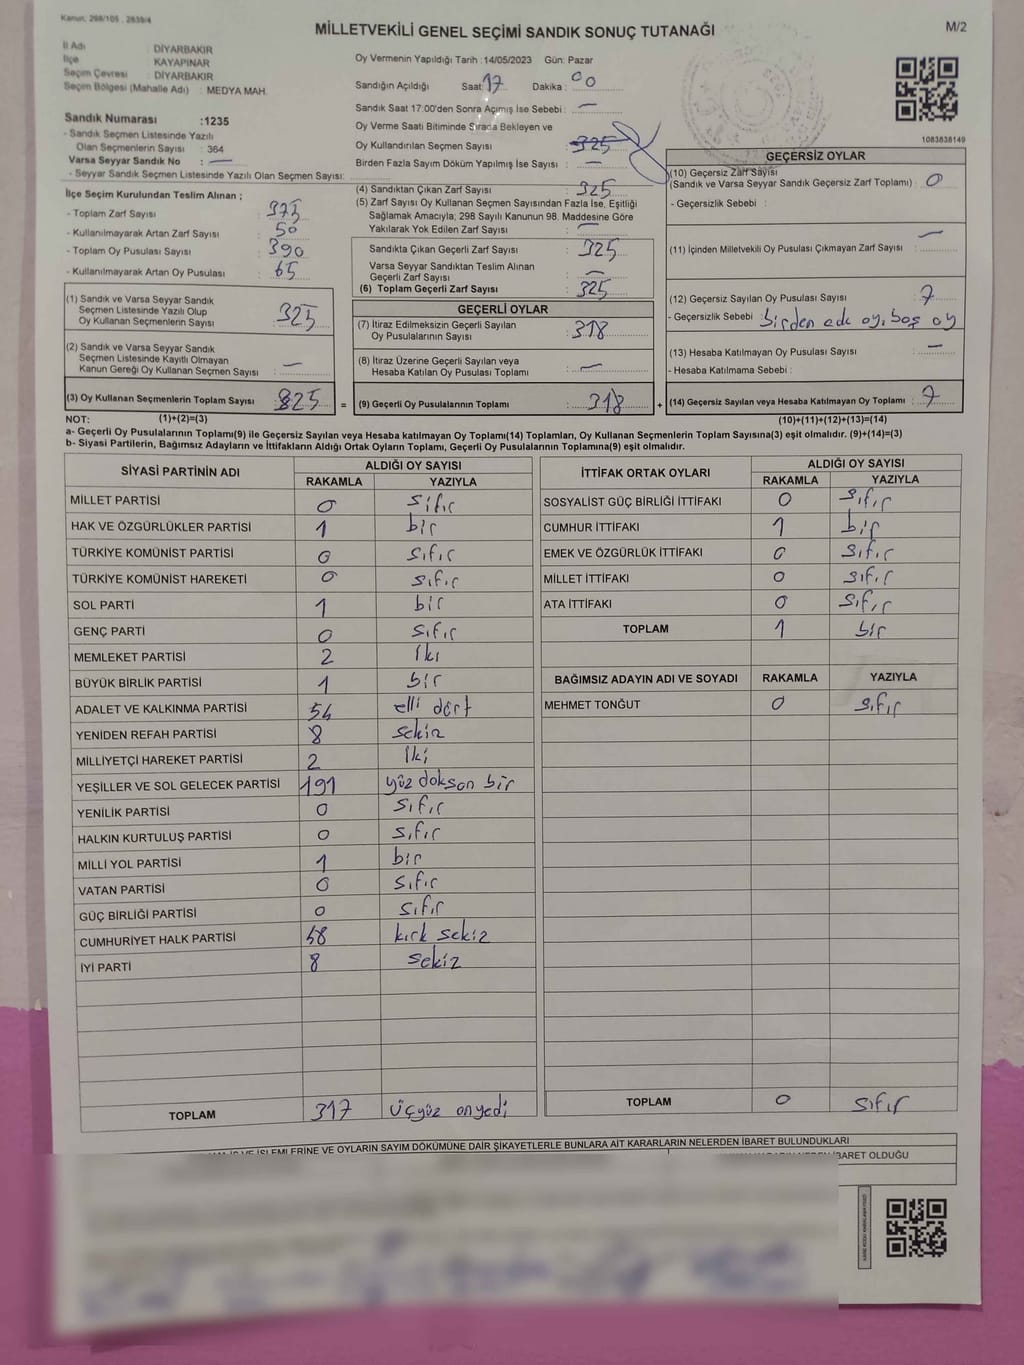 Kanun: 298/105 , 2839/4
MİLLETVEKİLİ GENEL SEÇİMİ SANDIK SONUÇ TUTANAĞI
M/2
İl Adı : DİYARBAKIR
İlçe : KAYAPINAR
Seçim Çevresi : DİYARBAKIR
Seçim Bölgesi (Mahalle Adı) : MEDYA MAH.
Oy Vermenin Yapıldığı Tarih : 14/05/2023 Gün: Pazar
Sandığın Açıldığı Saat: 17 Dakika : 00
Sandık Saat 17:00'den Sonra Açımış İse Sebebi : —
Oy Verme Saati Bitiminde Sırada Bekleyen ve
Oy Kullandırılan Seçmen Sayısı : 325
Birden Fazla Sayım Döküm Yapılmış İse Sayısı : —
1083838149
Sandık Numarası :1235
- Sandık Seçmen Listesinde Yazılı
Olan Seçmenlerin Sayısı : 364
Varsa Seyyar Sandık No : —
- Seyyar Sandık Seçmen Listesinde Yazılı Olan Seçmen Sayısı:
İlçe Seçim Kurulundan Teslim Alınan ;
- Toplam Zarf Sayısı : 375
- Kullanılmayarak Artan Zarf Sayısı : 50
- Toplam Oy Pusulası Sayısı : 390
- Kullanılmayarak Artan Oy Pusulası : 65
(1) Sandık ve Varsa Seyyar Sandık
Seçmen Listesinde Yazılı Olup
Oy Kullanan Seçmenlerin Sayısı : 325
(2) Sandık ve Varsa Seyyar Sandık
Seçmen Listesinde Kayıtlı Olmayan
Kanun Gereği Oy Kullanan Seçmen Sayısı : —
(3) Oy Kullanan Seçmenlerin Toplam Sayısı : 325
(4) Sandıktan Çıkan Zarf Sayısı : 325
(5) Zarf Sayısı Oy Kullanan Seçmen Sayısından Fazla İse, Eşitliği
Sağlamak Amacıyla; 298 Sayılı Kanunun 98. Maddesine Göre
Yakılarak Yok Edilen Zarf Sayısı : —
Sandıkta Çıkan Geçerli Zarf Sayısı : 325
Varsa Seyyar Sandıktan Teslim Alınan
Geçerli Zarf Sayısı : —
(6) Toplam Geçerli Zarf Sayısı : 325
GEÇERLİ OYLAR
(7) İtiraz Edilmeksizin Geçerli Sayılan
Oy Pusulalarının Sayısı : 318
(8) İtiraz Üzerine Geçerli Sayılan veya
Hesaba Katılan Oy Pusulası Toplamı : —
= (9) Geçerli Oy Pusulalarının Toplamı : 318
GEÇERSİZ OYLAR
(10) Geçersiz Zarf Sayısı
(Sandık ve Varsa Seyyar Sandık Geçersiz Zarf Toplamı) : 0
- Geçersizlik Sebebi :
(11) İçinden Milletvekili Oy Pusulası Çıkmayan Zarf Sayısı : —
(12) Geçersiz Sayılan Oy Pusulası Sayısı : 7
- Geçersizlik Sebebi : birden çok oy, boş oy
(13) Hesaba Katılmayan Oy Pusulası Sayısı : —
- Hesaba Katılmama Sebebi :
+ (14) Geçersiz Sayılan veya Hesaba Katılmayan Oy Toplamı : 7
NOT: (1)+(2)=(3) (10)+(11)+(12)+(13)=(14)
a- Geçerli Oy Pusulalarının Toplamı(9) ile Geçersiz Sayılan veya Hesaba katılmayan Oy Toplamı(14) Toplamları, Oy Kullanan Seçmenlerin Toplam Sayısına(3) eşit olmalıdır. (9)+(14)=(3)
b- Siyasi Partilerin, Bağımsız Adayların ve İttifakların Aldığı Ortak Oyların Toplamı, Geçerli Oy Pusulalarının Toplamına(9) eşit olmalıdır.
SİYASİ PARTİNİN ADI ALDIĞI OY SAYISI
RAKAMLA YAZIYLA
MİLLET PARTİSİ 0 sıfır
HAK VE ÖZGÜRLÜKLER PARTİSİ 1 bir
TÜRKİYE KOMÜNİST PARTİSİ 0 sıfır
TÜRKİYE KOMÜNİST HAREKETİ 0 sıfır
SOL PARTİ 1 bir
GENÇ PARTİ 0 sıfır
MEMLEKET PARTİSİ 2 iki
BÜYÜK BİRLİK PARTİSİ 1 bir
ADALET VE KALKINMA PARTİSİ 54 elli dört
YENİDEN REFAH PARTİSİ 8 sekiz
MİLLİYETÇİ HAREKET PARTİSİ 2 iki
YEŞİLLER VE SOL GELECEK PARTİSİ 191 yüz dokson bir
YENİLİK PARTİSİ 0 sıfır
HALKIN KURTULUŞ PARTİSİ 0 sıfır
MİLLİ YOL PARTİSİ 1 bir
VATAN PARTİSİ 0 sıfır
GÜÇ BİRLİĞİ PARTİSİ 0 sıfır
CUMHURİYET HALK PARTİSİ 48 kırk sekiz
İYİ PARTİ 8 sekiz
TOPLAM 317 üçyüz onyedi
İTTİFAK ORTAK OYLARI ALDIĞI OY SAYISI
RAKAMLA YAZIYLA
SOSYALİST GÜÇ BİRLİĞİ İTTİFAKI 0 sıfır
CUMHUR İTTİFAKI 1 bir
EMEK VE ÖZGÜRLÜK İTTİFAKI 0 sıfır
MİLLET İTTİFAKI 0 sıfır
ATA İTTİFAKI 0 sıfır
TOPLAM 1 bir
BAĞIMSIZ ADAYIN ADI VE SOYADI RAKAMLA YAZIYLA
MEHMET TONĞUT 0 sıfır
TOPLAM 0 sıfır
İŞLEMLERİNE VE OYLARIN SAYIM DÖKÜMÜNE DAİR ŞİKAYETLERLE BUNLARA AİT KARARLARIN NELERDEN İBARET BULUNDUKLARI
İBARET OLDUĞU